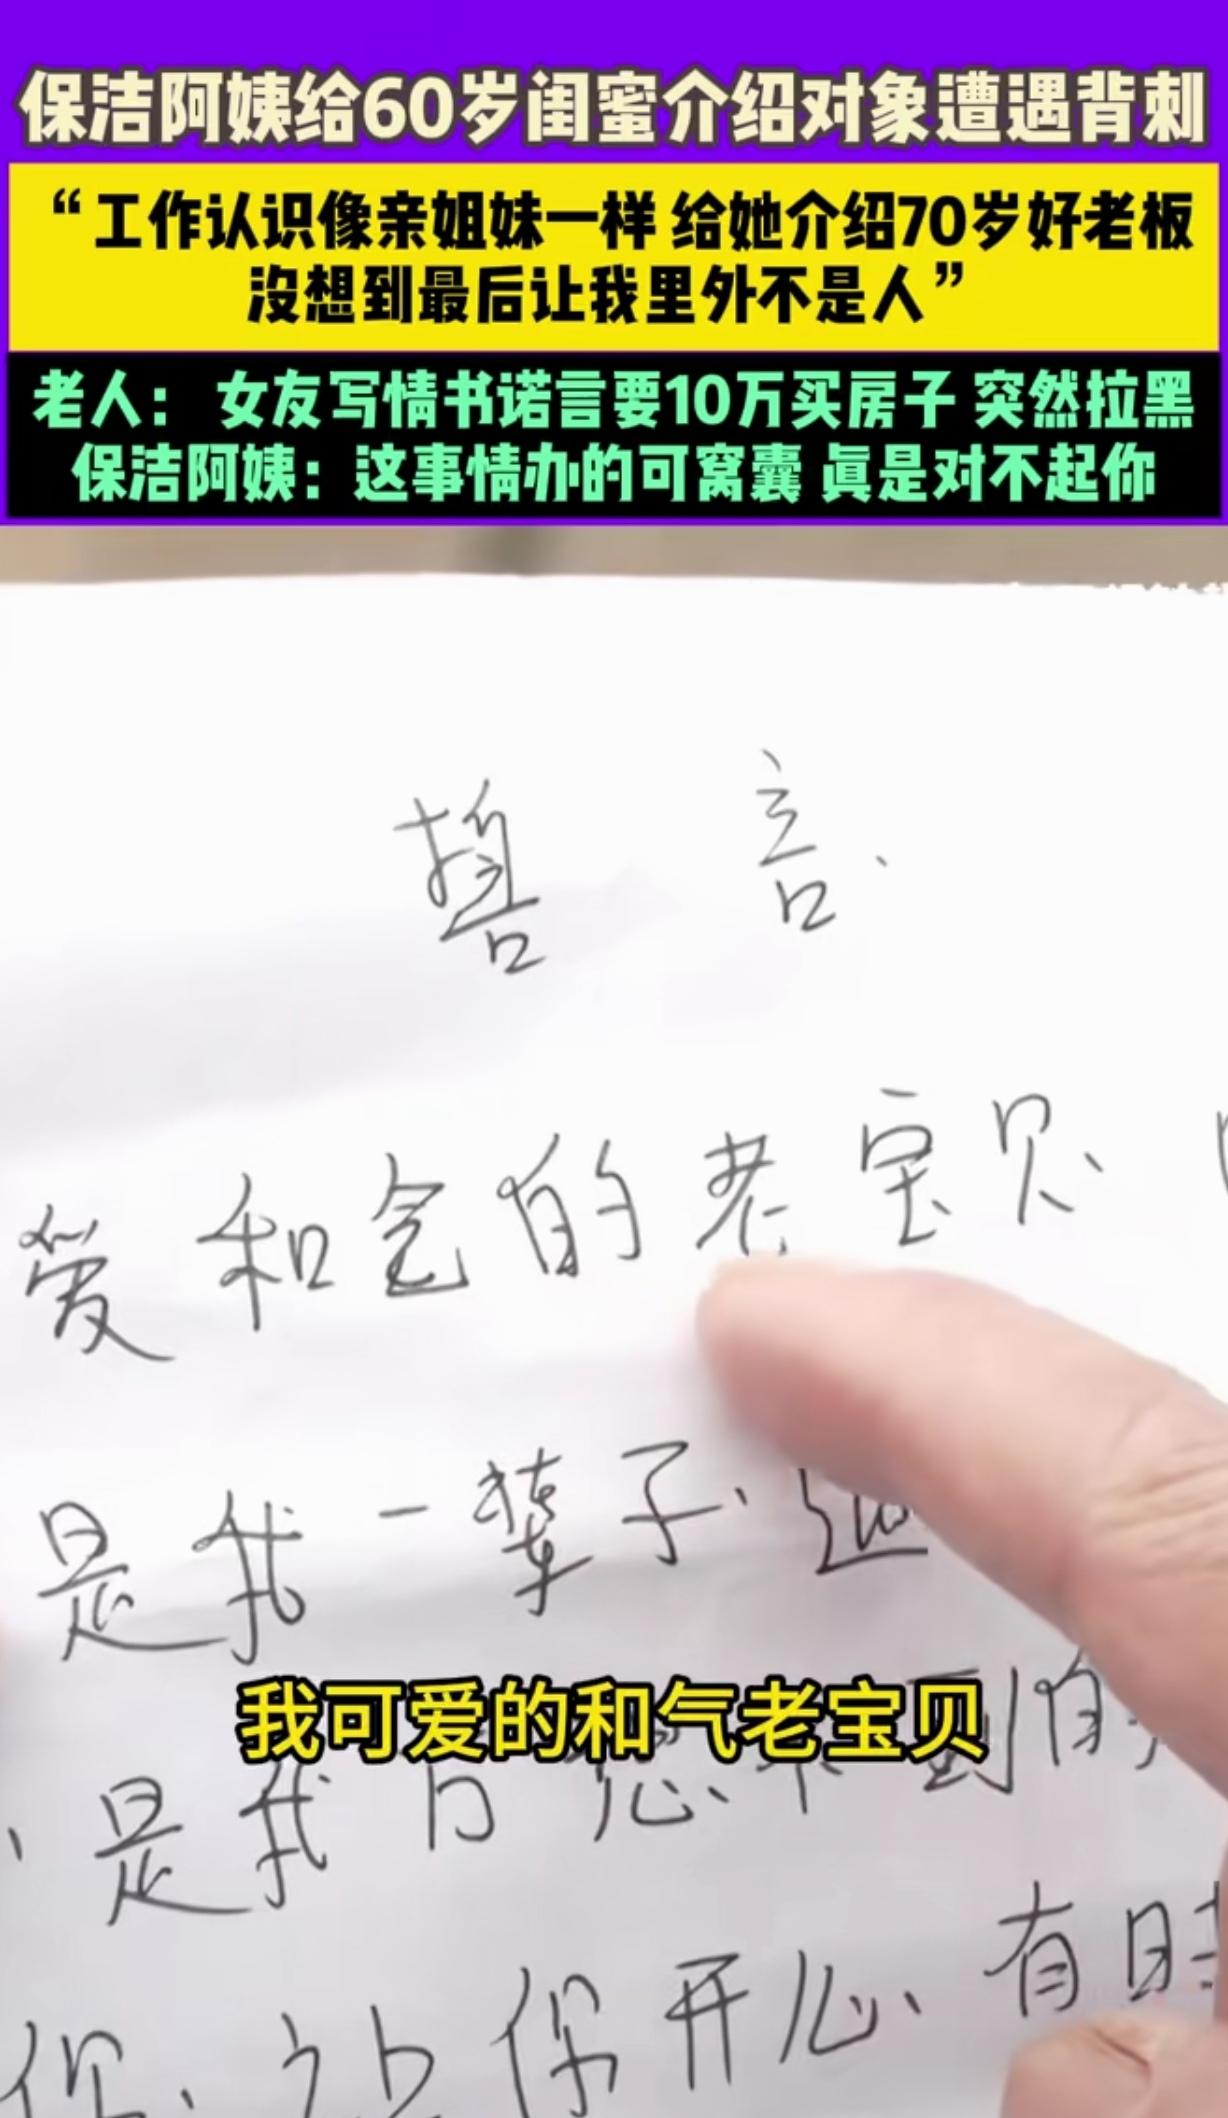 保洁阿姨给60岁闺蜜介绍对象遭遇背刺
“工作认识像亲姐妹一样 给她介绍70岁好老板
没想到最后让我里外不是人”
老人： 女友写情书诺言要10万买房子 突然拉黑
保洁阿姨：这事情办的可窝囊 真是对不起你
誓言.
爱和气的老宝贝、
是我一辈子、
我可爱的和气老宝贝
、是我
你、让你开心、有时